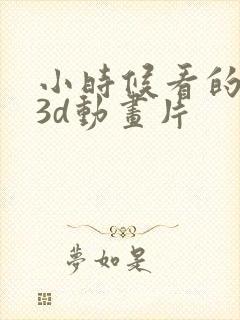 小時候看的
3d動畫片
夢如是